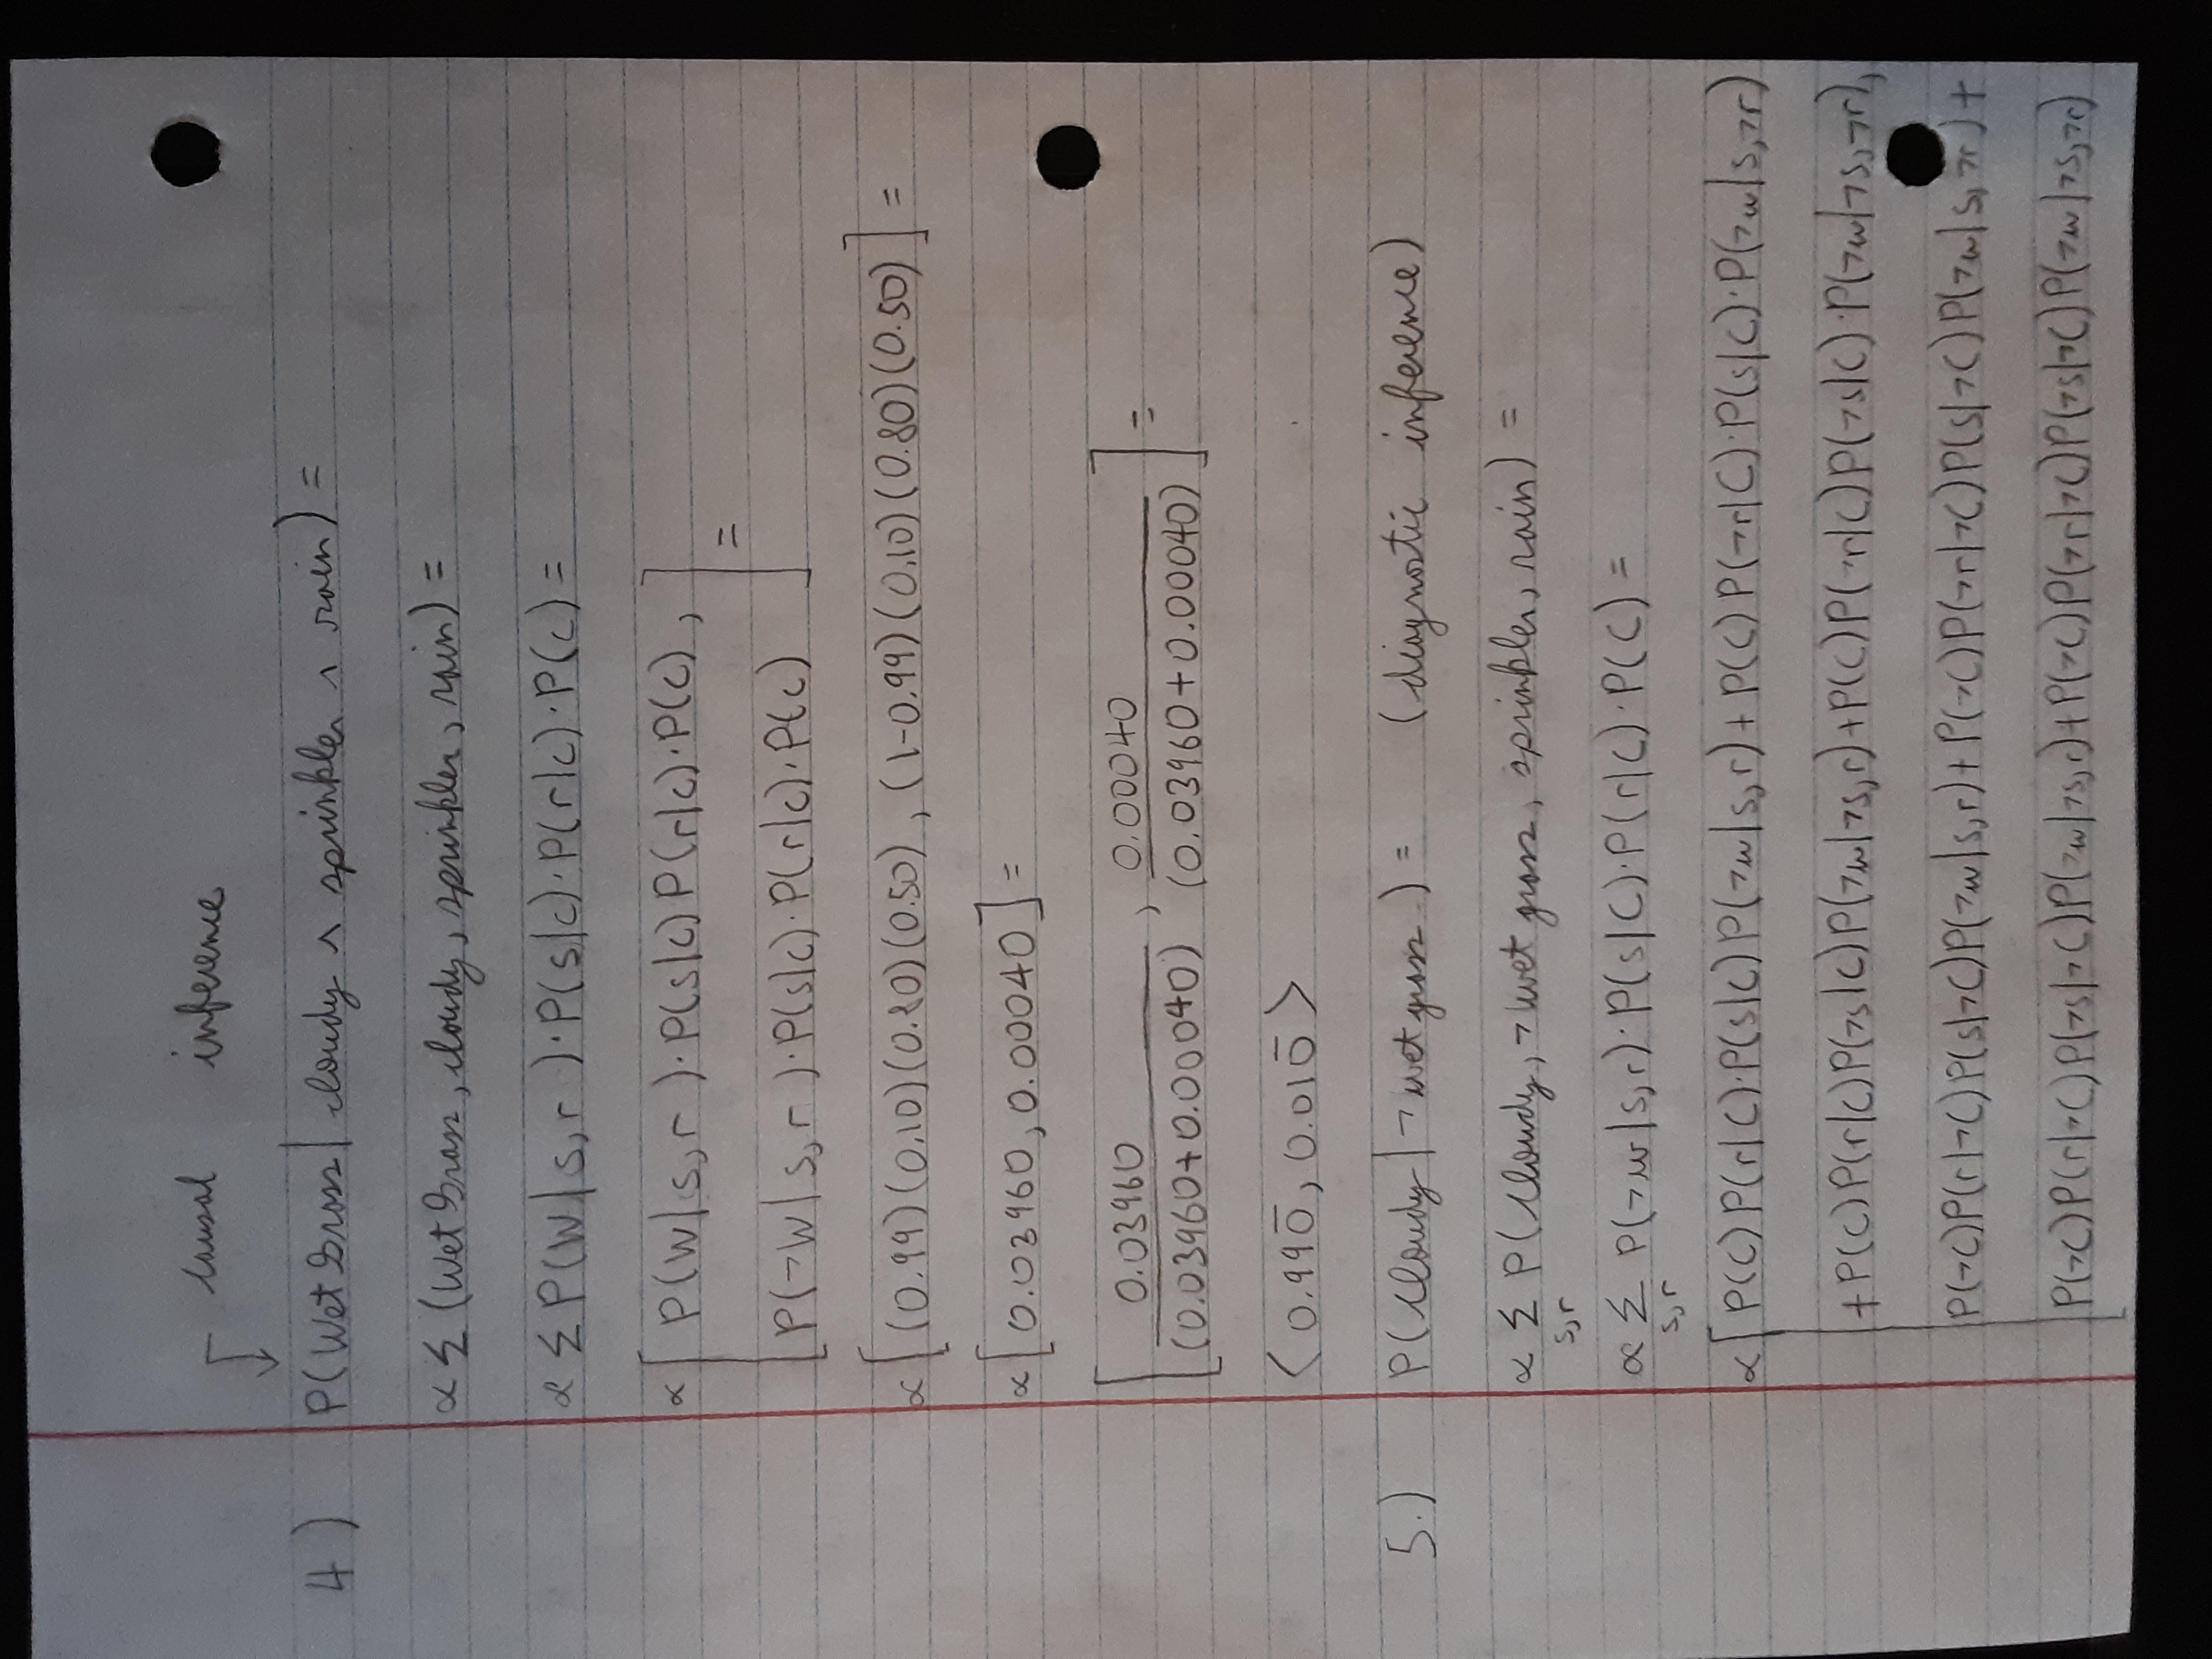 causal inference
4) P(WetGrass | cloudy ∧ sprinkler ∧ rain) =
∝ Σ (WetGrass, cloudy, sprinkler, rain) =
∝ Σ P(W|s,r)·P(s|c)·P(r|c)·P(c) =
∝ [ P(W|s,r)·P(s|c) P(r|c)·P(c),
P(¬W|s,r)·P(s|c)·P(r|c)·P(c) ] =
∝ [(0.99)(0.10)(0.80)(0.50), (1-0.99)(0.10)(0.80)(0.50)] =
∝ [0.03960, 0.00040] =
[ 0.03960 / (0.03960+0.00040), 0.00040 / (0.03960+0.00040) ] =
⟨0.990̅, 0.010̅⟩
5.) P(Cloudy | ¬wet grass) = (diagnostic inference)
∝ Σ s,r P(Cloudy, ¬wet grass, sprinkler, rain) =
∝ Σ s,r P(¬w|s,r)·P(s|C)·P(r|C)·P(C) =
∝ [ P(C)P(r|C)·P(s|C)P(¬w|s,r) + P(C)P(¬r|C)·P(s|C)·P(¬w|s,¬r)
+ P(C)P(r|C)P(¬s|C)P(¬w|¬s,r) + P(C)P(¬r|C)P(¬s|C)·P(¬w|¬s,¬r),
P(¬C)P(r|¬C)P(s|¬C)P(¬w|s,r) + P(¬C)P(¬r|¬C)P(s|¬C)P(¬w|s,¬r) +
P(¬C)P(r|¬C)P(¬s|¬C)P(¬w|¬s,r) + P(¬C)P(¬r|¬C)P(¬s|¬C)P(¬w|¬s,¬r)